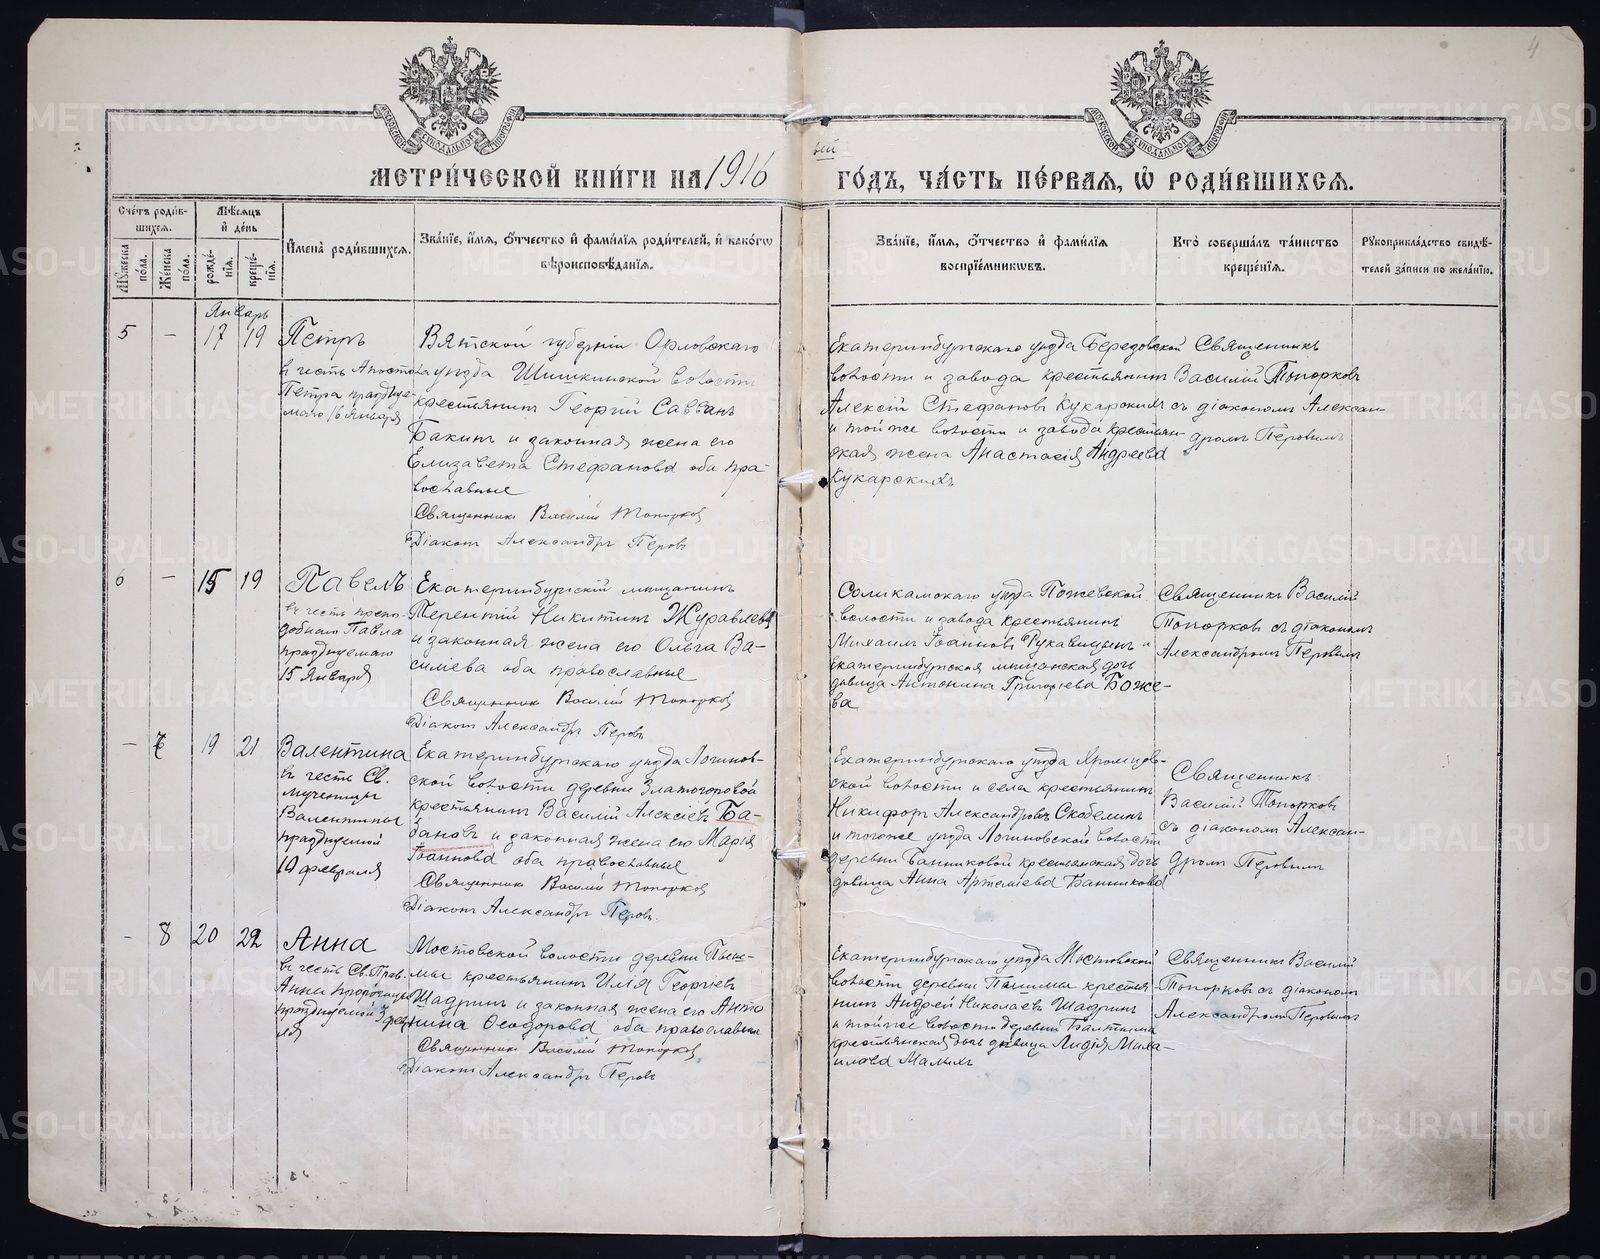 4
МЕТРИ́ЧЕСКОЙ КНИ́ГИ НА 1916
ГО́ДЪ, ЧА́СТЬ ПЕ́РВАЯ, Ѡ РОДИ́ВШИХСЯ.
Сче́тъ роди́в-
шихся.
Мѣ́сяцъ
и҆ де́нь
Мꙋ́жеска по́ла.
Же́нска по́ла.
рожде́-
нїѧ.
креще́-
нїѧ.
И҆мена̀ роди́вшихсѧ.
Зва́нїе, и҆́мѧ, ѻ҆́тчество и҆ фами́лїѧ роди́телей, и҆ како́гѡ
вѣроисповѣ́данїѧ.
Зва́нїе, и҆́мѧ, ѻ҆́тчество и҆ фами́лїѧ
воспрїе́мникѡвъ.
Кто̀ соверша́лъ та́инство
креще́нїѧ.
Рꙋкоприкла́дство свидѣ́-
телей за́писи по жела́нїю.
Январь
5 - 17 19
Петръ
въ честь Апостола
Петра празднуе-
маго 16 января
Вятской губерніи Орловскаго
уѣзда Шишкинской волости
крестьянинъ Георгій Саввинъ
Бакинъ и законная жена его
Елизавета Стефанова оба пра-
вославные
Священникъ Василій Топорковъ
Діаконъ Александръ Перовъ
Екатеринбургскаго уѣзда Березовской
волости и завода крестьянинъ
Алексій Стефановъ Кукарскихъ
и той же волости и завода крестьян-
ская жена Анастасія Андреева
Кукарскихъ
Священникъ
Василій Топорковъ
съ діакономъ Алексан-
дромъ Перовымъ
6 - 15 19
Павелъ
въ честь препо-
добнаго Павла
празднуемаго
15 Января
Екатеринбургскій мѣщанинъ
Терентій Никитинъ Журавлевъ
и законная жена его Ольга Ва-
силіева оба православные
Священникъ Василій Топорковъ
Діаконъ Александръ Перовъ
Соликамскаго уѣзда Пожевской
волости и завода крестьянинъ
Михаилъ Іоанновъ Рукавицынъ и
екатеринбургская мѣщанская дочь
дѣвица Антонина Григоріева Боже-
ва
Священникъ Василій
Топорковъ съ діакономъ
Александромъ Перовымъ
- 7 19 21
Валентина
въ честь Св.
мученицы
Валентины
празднуемой
10 февраля
Екатеринбургскаго уѣзда Логинов-
ской волости деревни Златогоровой
крестьянинъ Василій Алексіевъ Ба-
бановъ и законная жена его Марія
Іоаннова оба православные
Священникъ Василій Топорковъ
Діаконъ Александръ Перовъ.
Екатеринбургскаго уѣзда Хромцов-
ской волости и села крестьянинъ
Никифоръ Александровъ Скобелинъ
и тогоже уѣзда Логиновской волости
деревни Банниковой крестьянская дочь
дѣвица Анна Артеміева Банникова
Священникъ
Василій Топорковъ
съ діакономъ Алексан-
дромъ Перовымъ
- 8 20 22
Анна
въ честь Св. Прав.
Анны пророчицы
празднуемой 3 фев
ля
Мостовской волости деревни Пыш-
мы крестьянинъ Илія Георгіевъ
Шадринъ и законная жена его Анто
нина Ѳеодорова оба православные
Священникъ Василій Топорковъ
Діаконъ Александръ Перовъ
Екатеринбургскаго уѣзда Мостовской
волости деревни Пышмы крестья
нинъ Андрей Николаевъ Шадринъ
и тойже волости деревни Балтыма
крестьянская дочь дѣвица Лидія Миха-
илова Малыхъ
Священникъ Василій
Топорковъ съ діакономъ
Александромъ Перовымъ
METRIKI.GASO-URAL.RU